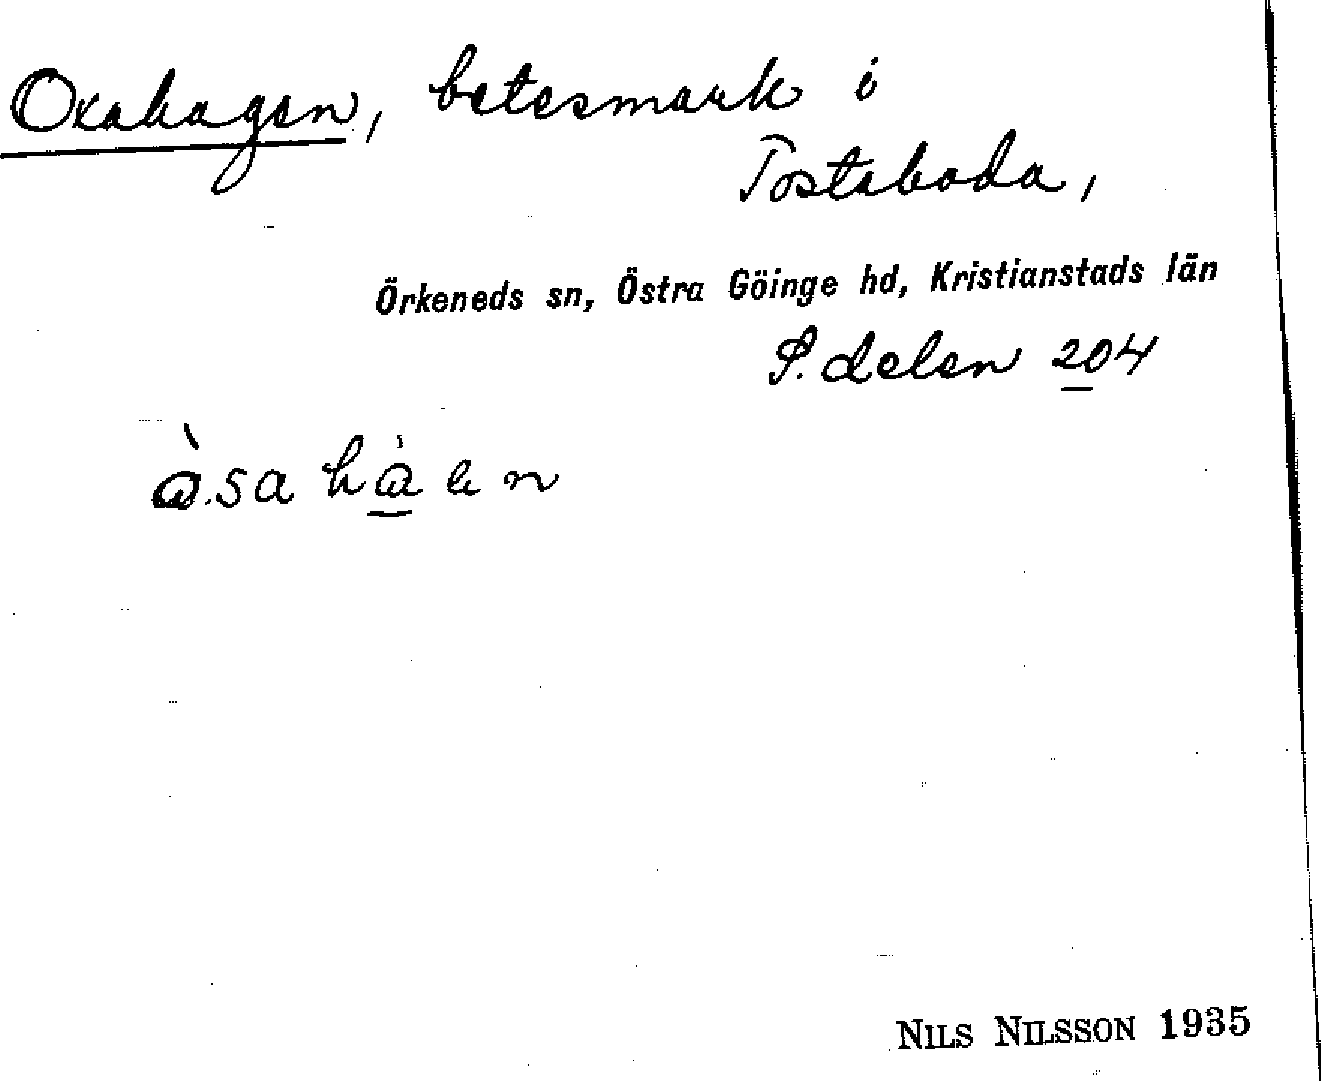 Oxahagen, betesmark i
Tostaboda,
Örkeneds sn, Östra Göinge hd, Kristianstads län
S. delen 204
NILS NILSSON 1935